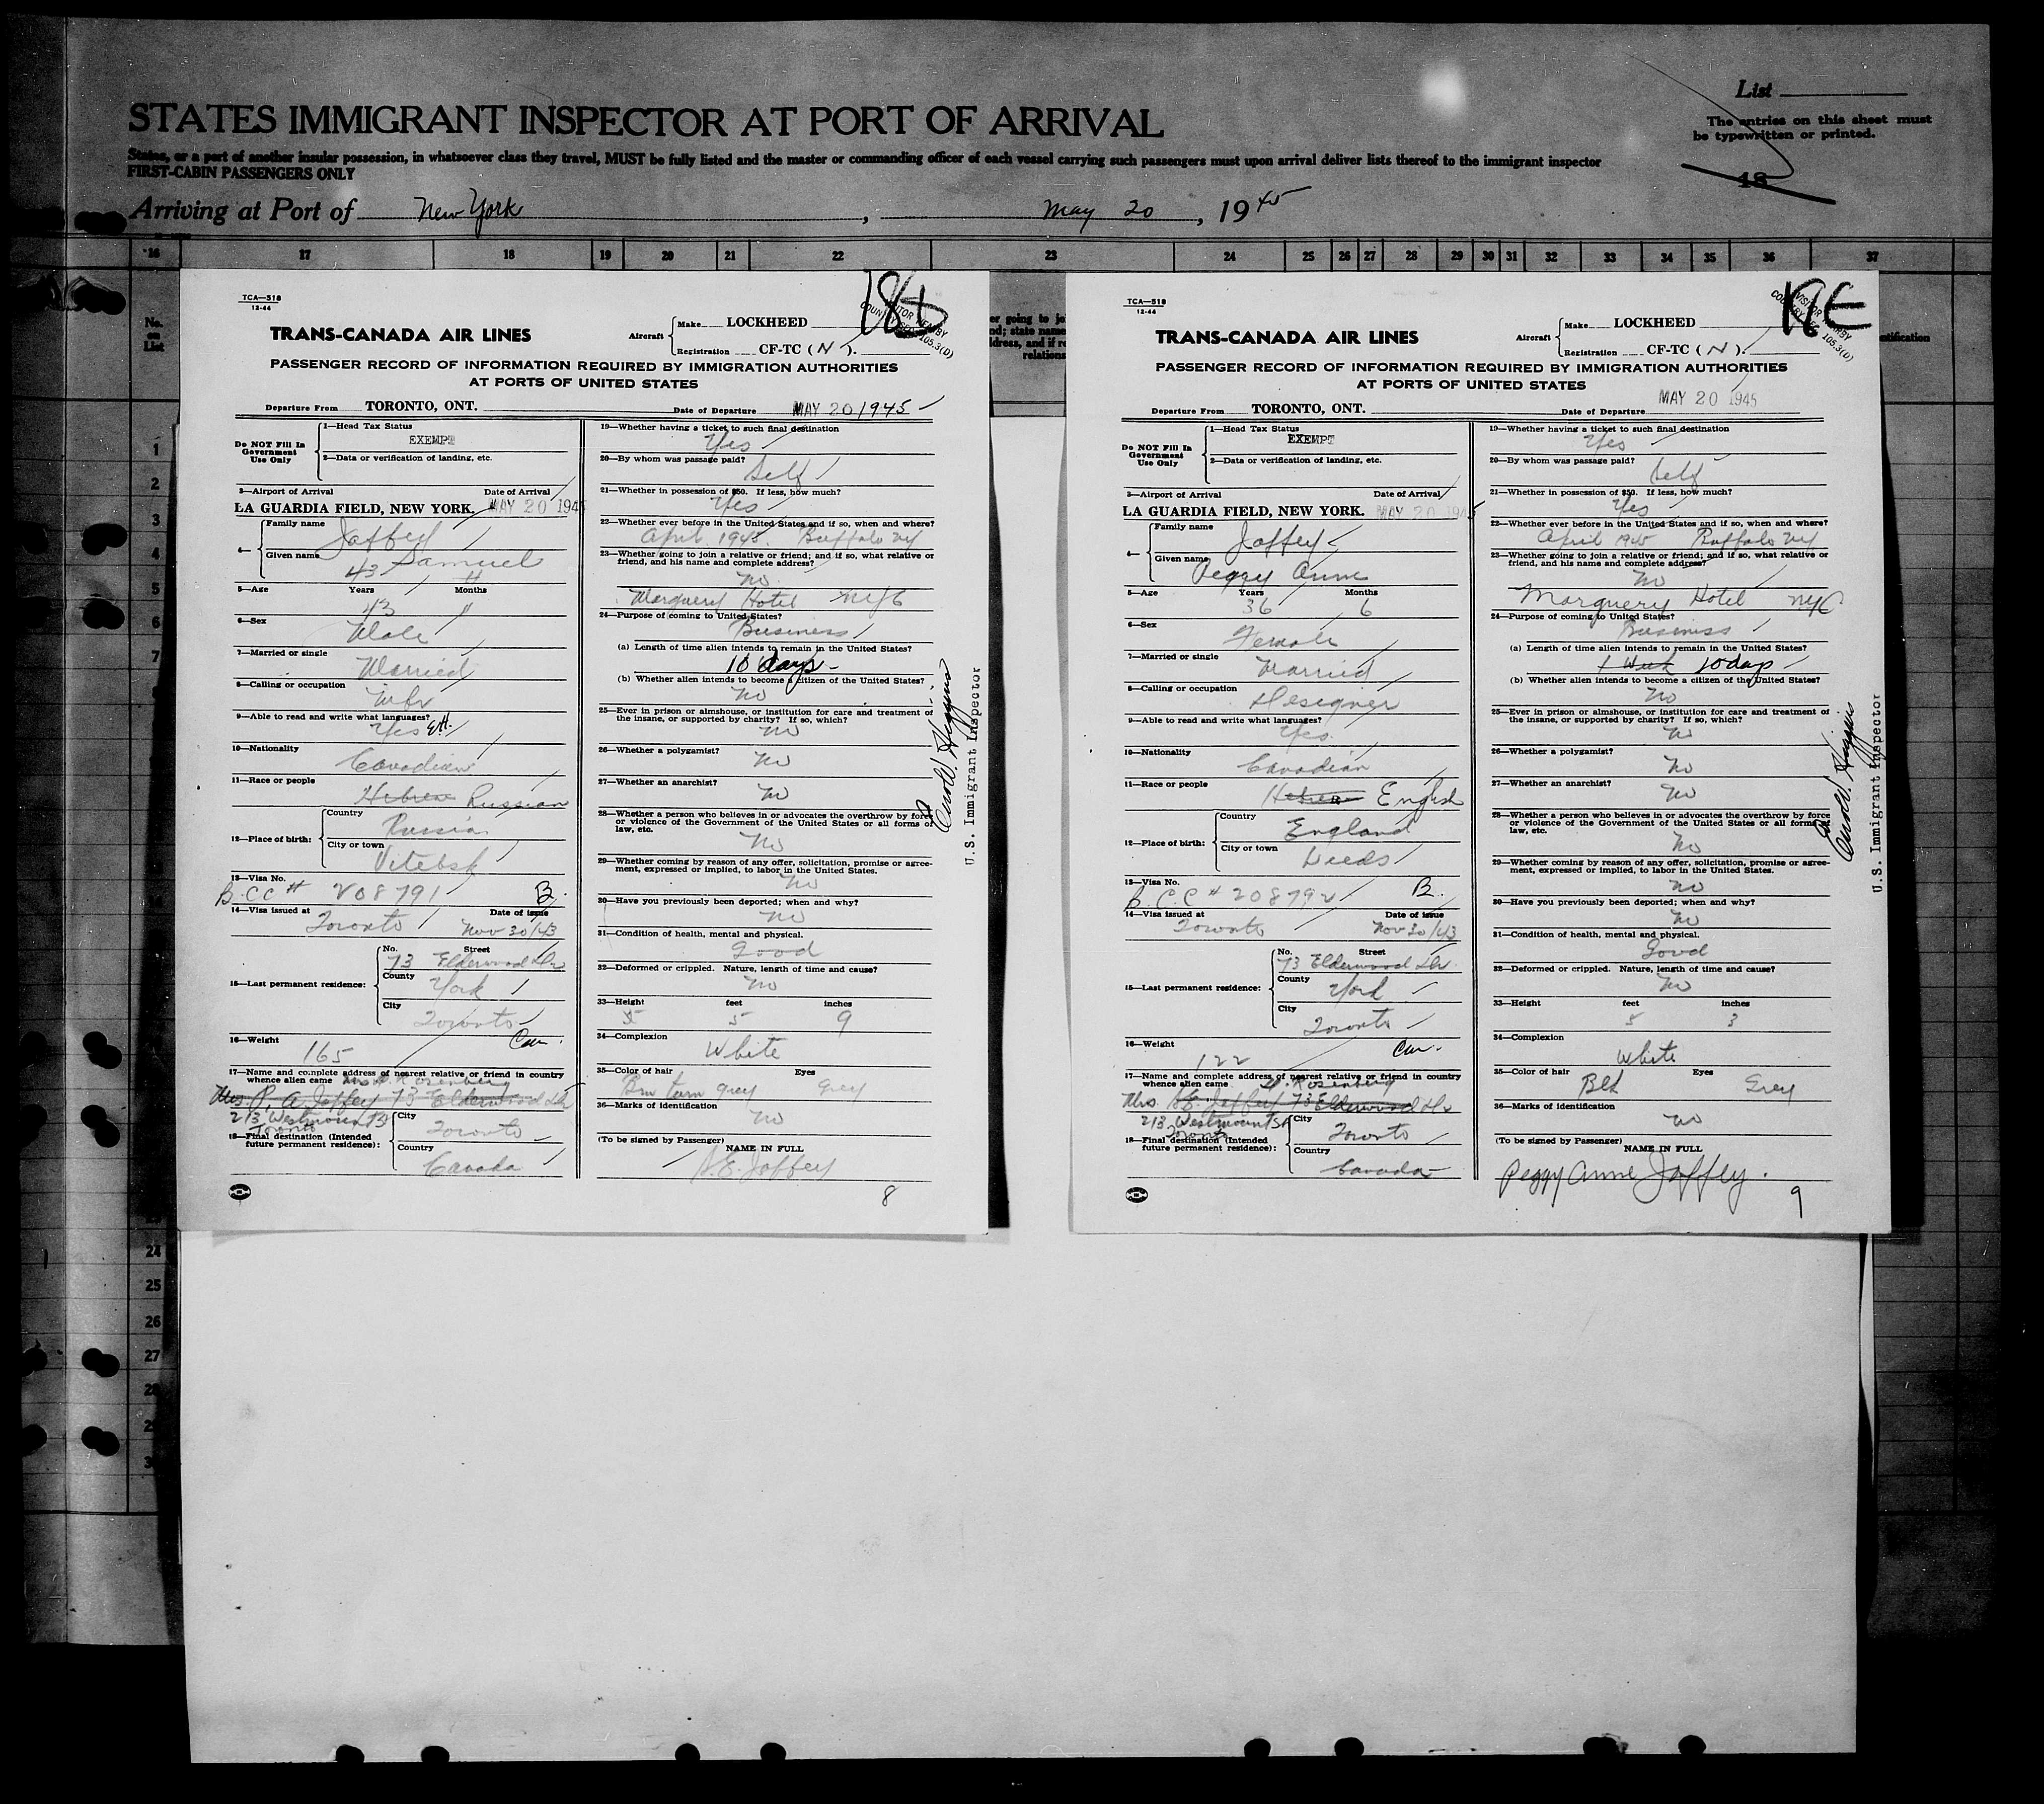 List
STATES IMMIGRANT INSPECTOR AT PORT OF ARRIVAL
The entries on this sheet must
be typewritten or printed.
States, or a part of another insular possession, in whatsoever class they travel, MUST be fully listed and the master or commanding officer of each vessel carrying such passengers must upon arrival deliver lists thereof to the immigrant inspector
FIRST-CABIN PASSENGERS ONLY
18
Arriving at Port of New York, May 20, 1945
16 17 18 19 20 21 22 23 24 25 26 27 28 29 30 31 32 33 34 35 36 37
No.
on
List
TCA—518
12-44
18D
TRANS-CANADA AIR LINES
Aircraft Make LOCKHEED
Registration CF-TC (N).
PASSENGER RECORD OF INFORMATION REQUIRED BY IMMIGRATION AUTHORITIES
AT PORTS OF UNITED STATES
Departure From TORONTO, ONT. Date of Departure MAY 20 1945
Do NOT Fill In
Government
Use Only
1—Head Tax Status
EXEMPT
2—Data or verification of landing, etc.
3—Airport of Arrival Date of Arrival
LA GUARDIA FIELD, NEW YORK. MAY 20 1945
4— Family name Jaffey
Given name Samuel
43
5—Age Years Months
43
6—Sex
Male
7—Married or single
Married
8—Calling or occupation
Mfr
9—Able to read and write what languages?
Yes
10—Nationality
Canadian
11—Race or people
Hebrew Russian
12—Place of birth: Country
Russia
City or town
Vitebsk
13—Visa No.
B.CC # 208791 B.
14—Visa issued at Date of issue
Toronto Nov 30/43
15—Last permanent residence: No. Street
73 Elderwood Dr
County
York
City
Toronto
16—Weight
165 Can.
17—Name and complete address of nearest relative or friend in country
whence alien came Rosenberg
Mrs. Jaffey 73 Elderwood Dr
213 Westmount
Toronto
18—Final destination (Intended
future permanent residence):
City
Toronto
Country
Canada
19—Whether having a ticket to such final destination
Yes
20—By whom was passage paid?
Self
21—Whether in possession of $50. If less, how much?
Yes
22—Whether ever before in the United States and if so, when and where?
April 1945. Buffalo NY
23—Whether going to join a relative or friend; and if so, what relative or
friend, and his name and complete address?
No
Marguery Hotel NYC
24—Purpose of coming to United States?
Business
(a) Length of time alien intends to remain in the United States?
10 days
(b) Whether alien intends to become a citizen of the United States?
No
25—Ever in prison or almshouse, or institution for care and treatment of
the insane, or supported by charity? If so, which?
No
26—Whether a polygamist?
No
27—Whether an anarchist?
No
28—Whether a person who believes in or advocates the overthrow by force
or violence of the Government of the United States or all forms of
law, etc.
No
29—Whether coming by reason of any offer, solicitation, promise or agree-
ment, expressed or implied, to labor in the United States.
No
30—Have you previously been deported; when and why?
No
31—Condition of health, mental and physical.
Good
32—Deformed or crippled. Nature, length of time and cause?
No
33—Height feet inches
5 9
34—Complexion
White
35—Color of hair Eyes
Brn turn grey Grey
36—Marks of identification
No
(To be signed by Passenger) NAME IN FULL
S.E. Jaffey
8
U.S. Immigrant Inspector
TCA—518
12-44
TRANS-CANADA AIR LINES
Aircraft Make LOCKHEED
Registration CF-TC (N).
PASSENGER RECORD OF INFORMATION REQUIRED BY IMMIGRATION AUTHORITIES
AT PORTS OF UNITED STATES
Departure From TORONTO, ONT. Date of Departure MAY 20 1945
Do NOT Fill In
Government
Use Only
1—Head Tax Status
EXEMPT
2—Data or verification of landing, etc.
3—Airport of Arrival Date of Arrival
LA GUARDIA FIELD, NEW YORK. MAY 20 1945
4— Family name Jaffey
Given name Peggy Anne
5—Age Years Months
36 6
6—Sex
Female
7—Married or single
Married
8—Calling or occupation
Designer
9—Able to read and write what languages?
Yes.
10—Nationality
Canadian
11—Race or people
Hebrew English
12—Place of birth: Country
England
City or town
Leeds
13—Visa No.
B.C C # 208792 B.
14—Visa issued at Date of issue
Toronto Nov 30/43
15—Last permanent residence: No. Street
73 Elderwood Dr.
County
York
City
Toronto
16—Weight
122 Can.
17—Name and complete address of nearest relative or friend in country
whence alien came Rosenberg
Mrs. Jaffey 73 Elderwood Dr
213 Westmount
Toronto
18—Final destination (Intended
future permanent residence):
City
Toronto
Country
Canada
19—Whether having a ticket to such final destination
Yes
20—By whom was passage paid?
Self
21—Whether in possession of $50. If less, how much?
Yes
22—Whether ever before in the United States and if so, when and where?
April 1945 Buffalo NY
23—Whether going to join a relative or friend; and if so, what relative or
friend, and his name and complete address?
No
Marguery Hotel NYC
24—Purpose of coming to United States?
Business
(a) Length of time alien intends to remain in the United States?
1 Week 10 days
(b) Whether alien intends to become a citizen of the United States?
No
25—Ever in prison or almshouse, or institution for care and treatment of
the insane, or supported by charity? If so, which?
No
26—Whether a polygamist?
No
27—Whether an anarchist?
No
28—Whether a person who believes in or advocates the overthrow by force
or violence of the Government of the United States or all forms of
law, etc.
No
29—Whether coming by reason of any offer, solicitation, promise or agree-
ment, expressed or implied, to labor in the United States.
No
30—Have you previously been deported; when and why?
No
31—Condition of health, mental and physical.
Good
32—Deformed or crippled. Nature, length of time and cause?
No
33—Height feet inches
5 3
34—Complexion
White
35—Color of hair Eyes
Blk Grey
36—Marks of identification
No
(To be signed by Passenger) NAME IN FULL
Peggy Anne Jaffey.
9
U.S. Immigrant Inspector
1
2
3
4
5
6
7
24
25
26
27